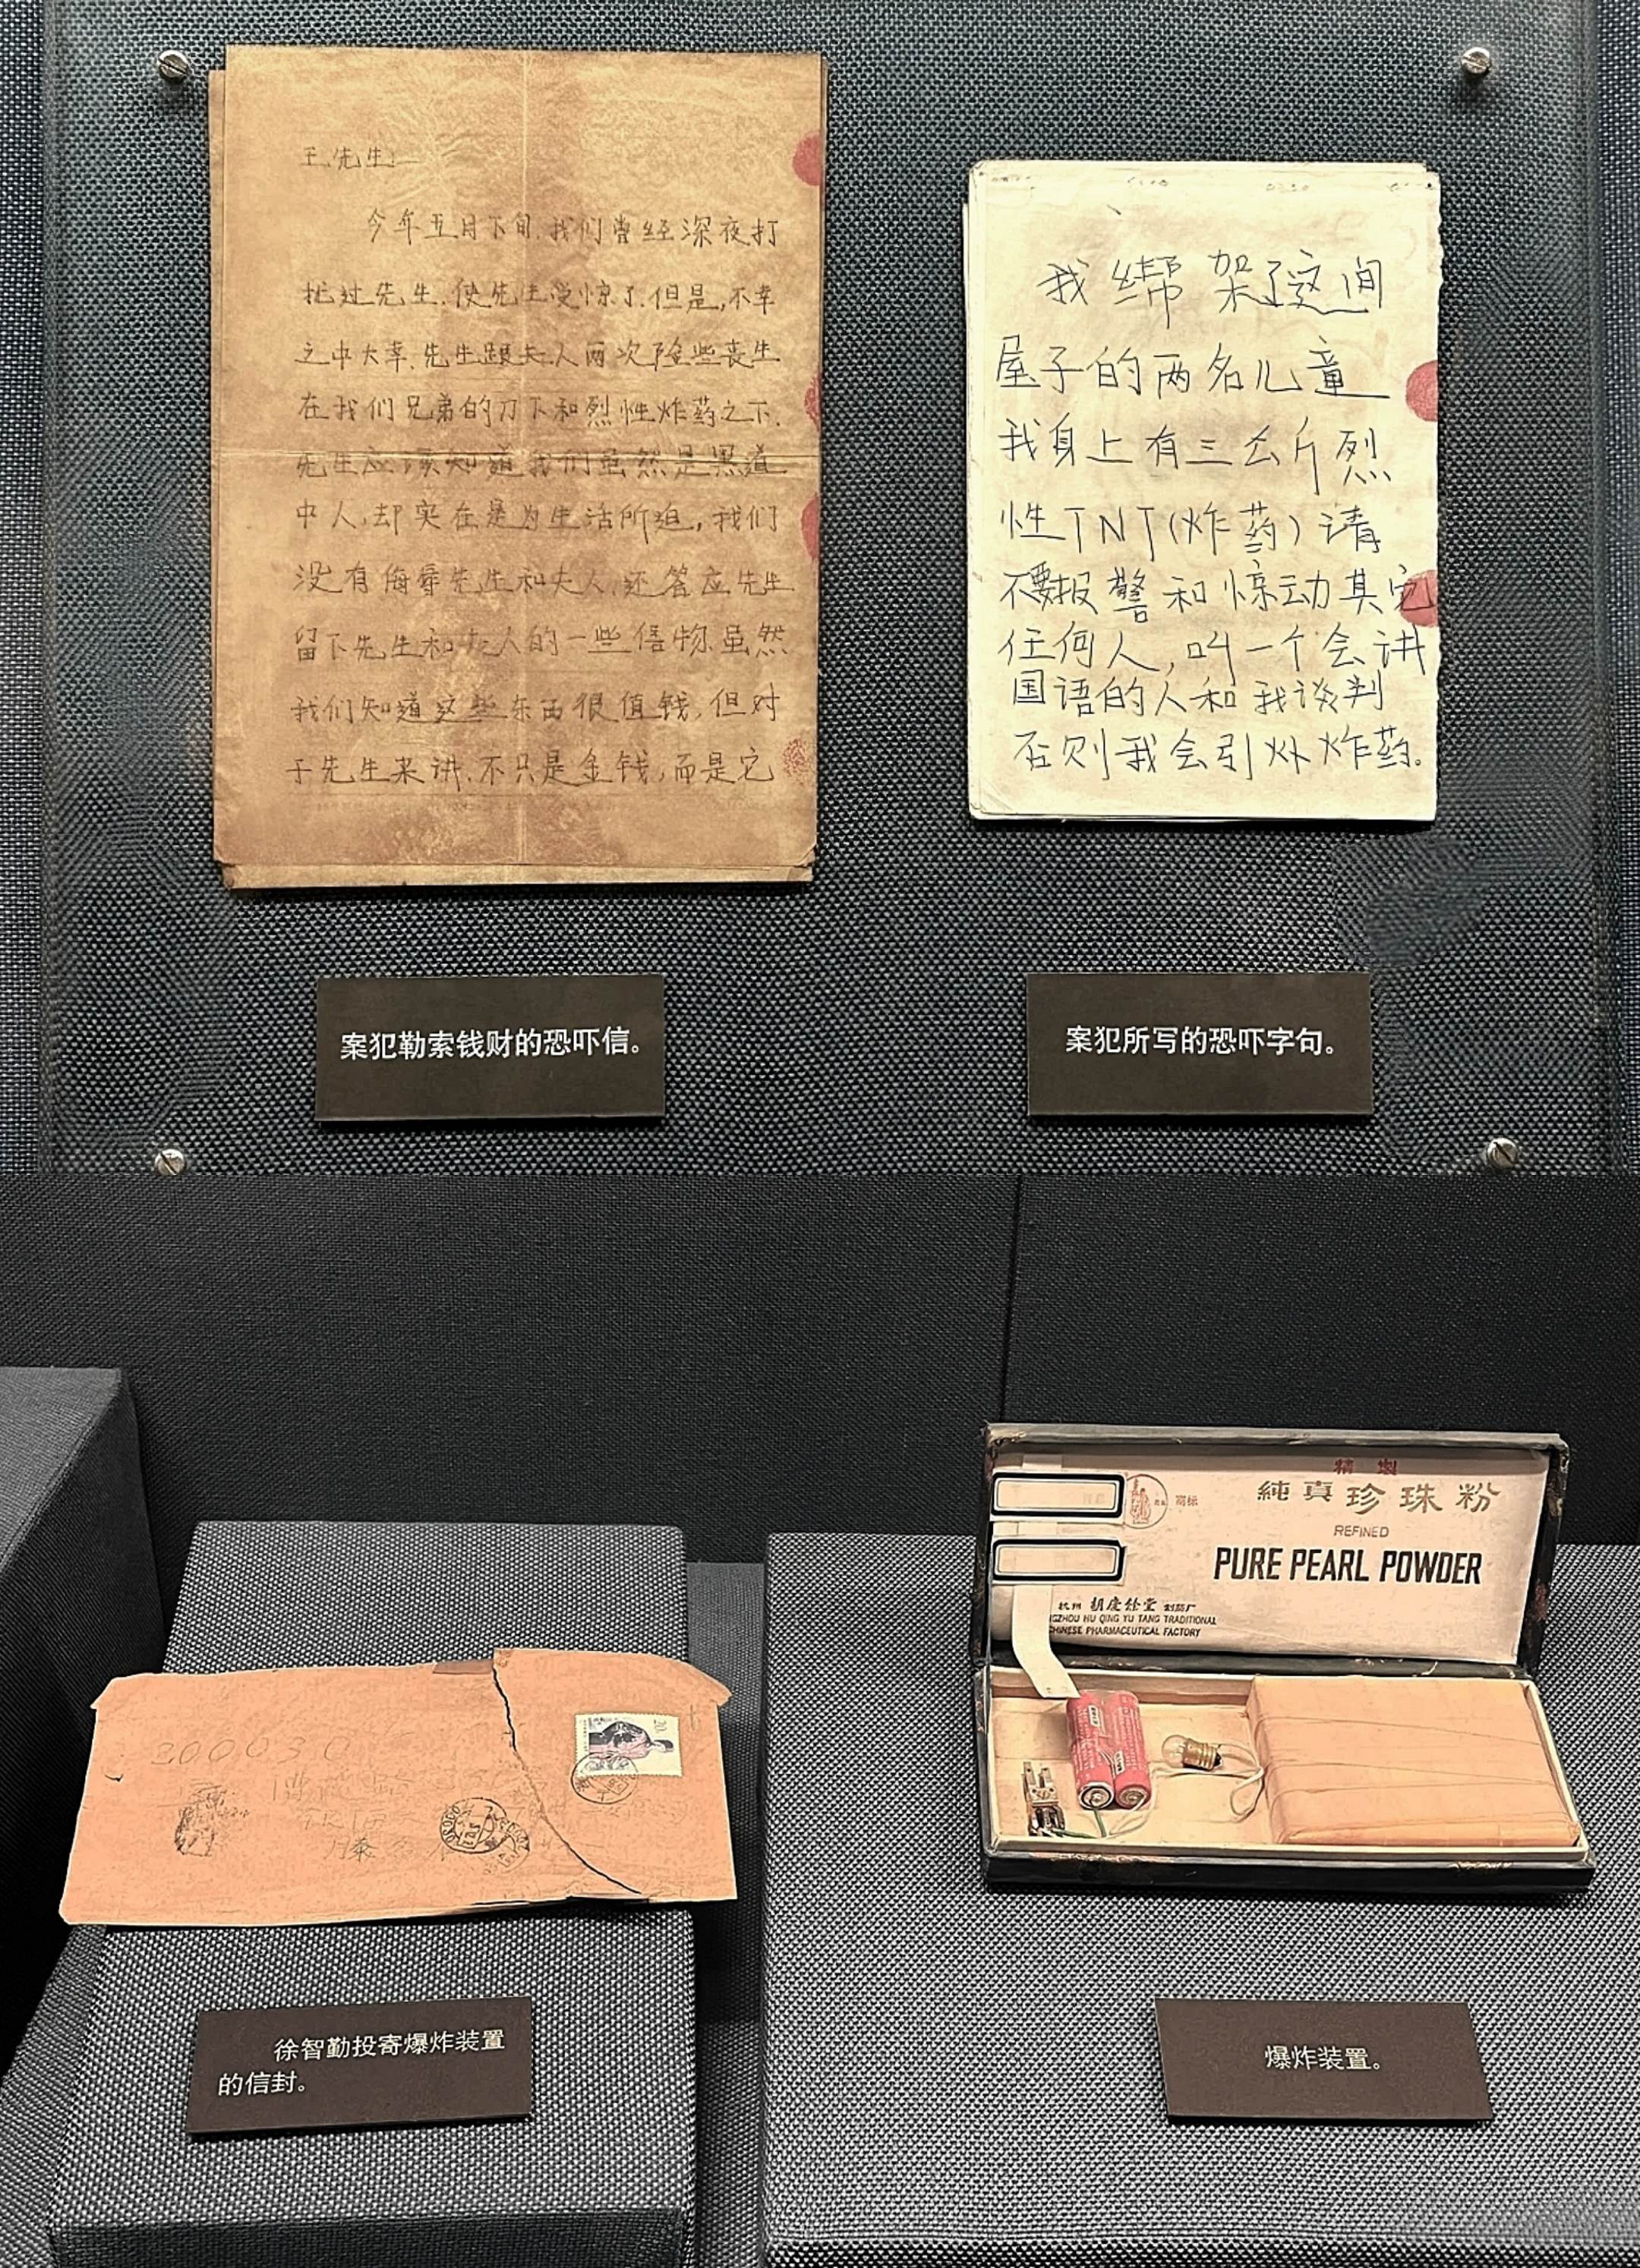 王先生:
今年五月下旬,我们曾经深夜打
扰过先生,使先生受惊了.但是,不幸
之中大幸,先生跟夫人两次险些丧生
在我们兄弟的刀下和烈性炸药之下.
先生应该知道我们虽然是黑道
中人,却实在是为生活所迫,我们
没有侮辱先生和夫人,还答应先生
留下先生和夫人的一些信物虽然
我们知道这些东西很值钱,但对
于先生来讲,不只是金钱,而是它
我绑架了这间
屋子的两名儿童
我身上有三公斤烈
性TNT(炸药)请
不要报警和惊动其它
任何人,叫一个会讲
国语的人和我谈判
否则我会引炸炸药.
案犯勒索钱财的恐吓信。
案犯所写的恐吓字句。
精 制
純真珍珠粉
REFINED
PURE PEARL POWDER
商标
杭州 胡庆余堂 制药厂
GZHOU HU QING YU TANG TRADITIONAL
CHINESE PHARMACEUTICAL FACTORY
200030
徐智勤投寄爆炸装置
的信封。
爆炸装置。